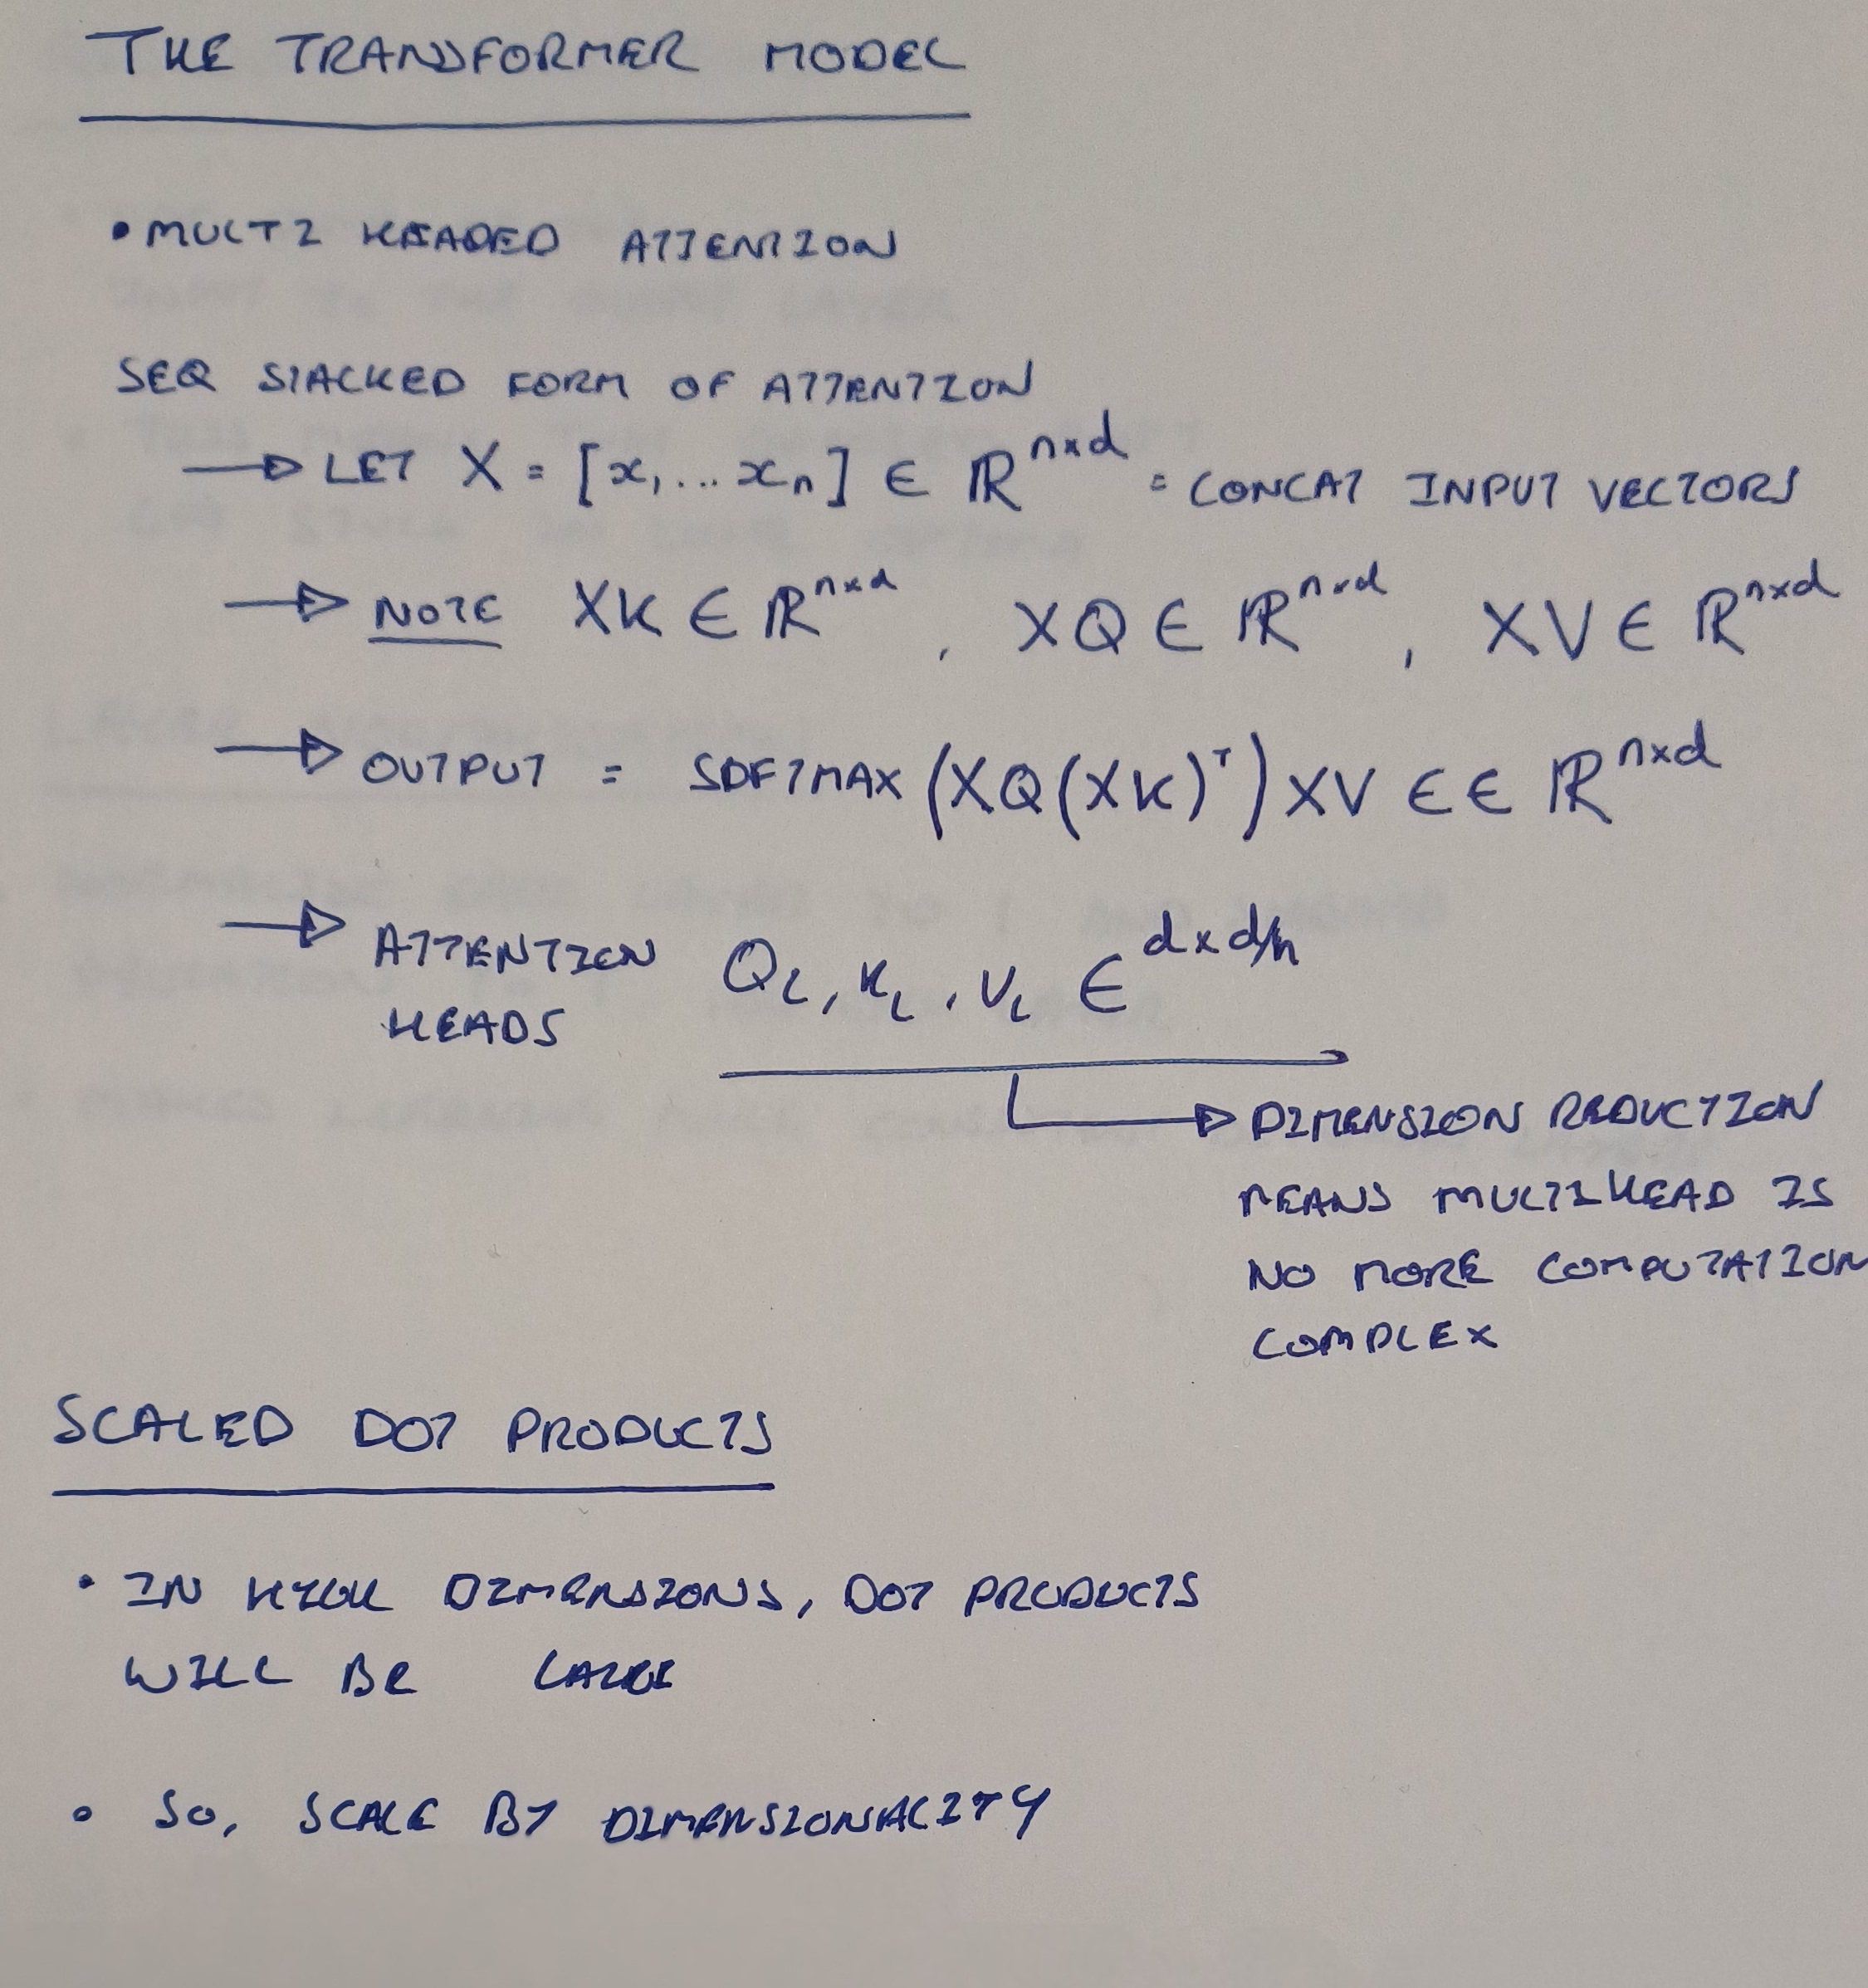 THE TRANSFORMER MODEL
• MULTI HEADED ATTENTION
SEQ STACKED FORM OF ATTENTION
→ LET X = [x₁...xₙ] ∈ ℝⁿˣᵈ = CONCAT INPUT VECTORS
→ NOTE XK ∈ ℝⁿˣᵈ, XQ ∈ ℝⁿˣᵈ, XV ∈ ℝⁿˣᵈ
→ OUTPUT = SOFTMAX (XQ(XK)ᵀ) XV ∈ ∈ ℝⁿˣᵈ
→ ATTENTION Q_L, K_L, V_L ∈ ^{d×d/h}
HEADS
→ DIMENSION REDUCTION
MEANS MULTIHEAD IS
NO MORE COMPUTATION
COMPLEX
SCALED DOT PRODUCTS
• IN HIGH DIMENSIONS, DOT PRODUCTS
WILL BE LARGE
• SO, SCALE BY DIMENSIONALITY